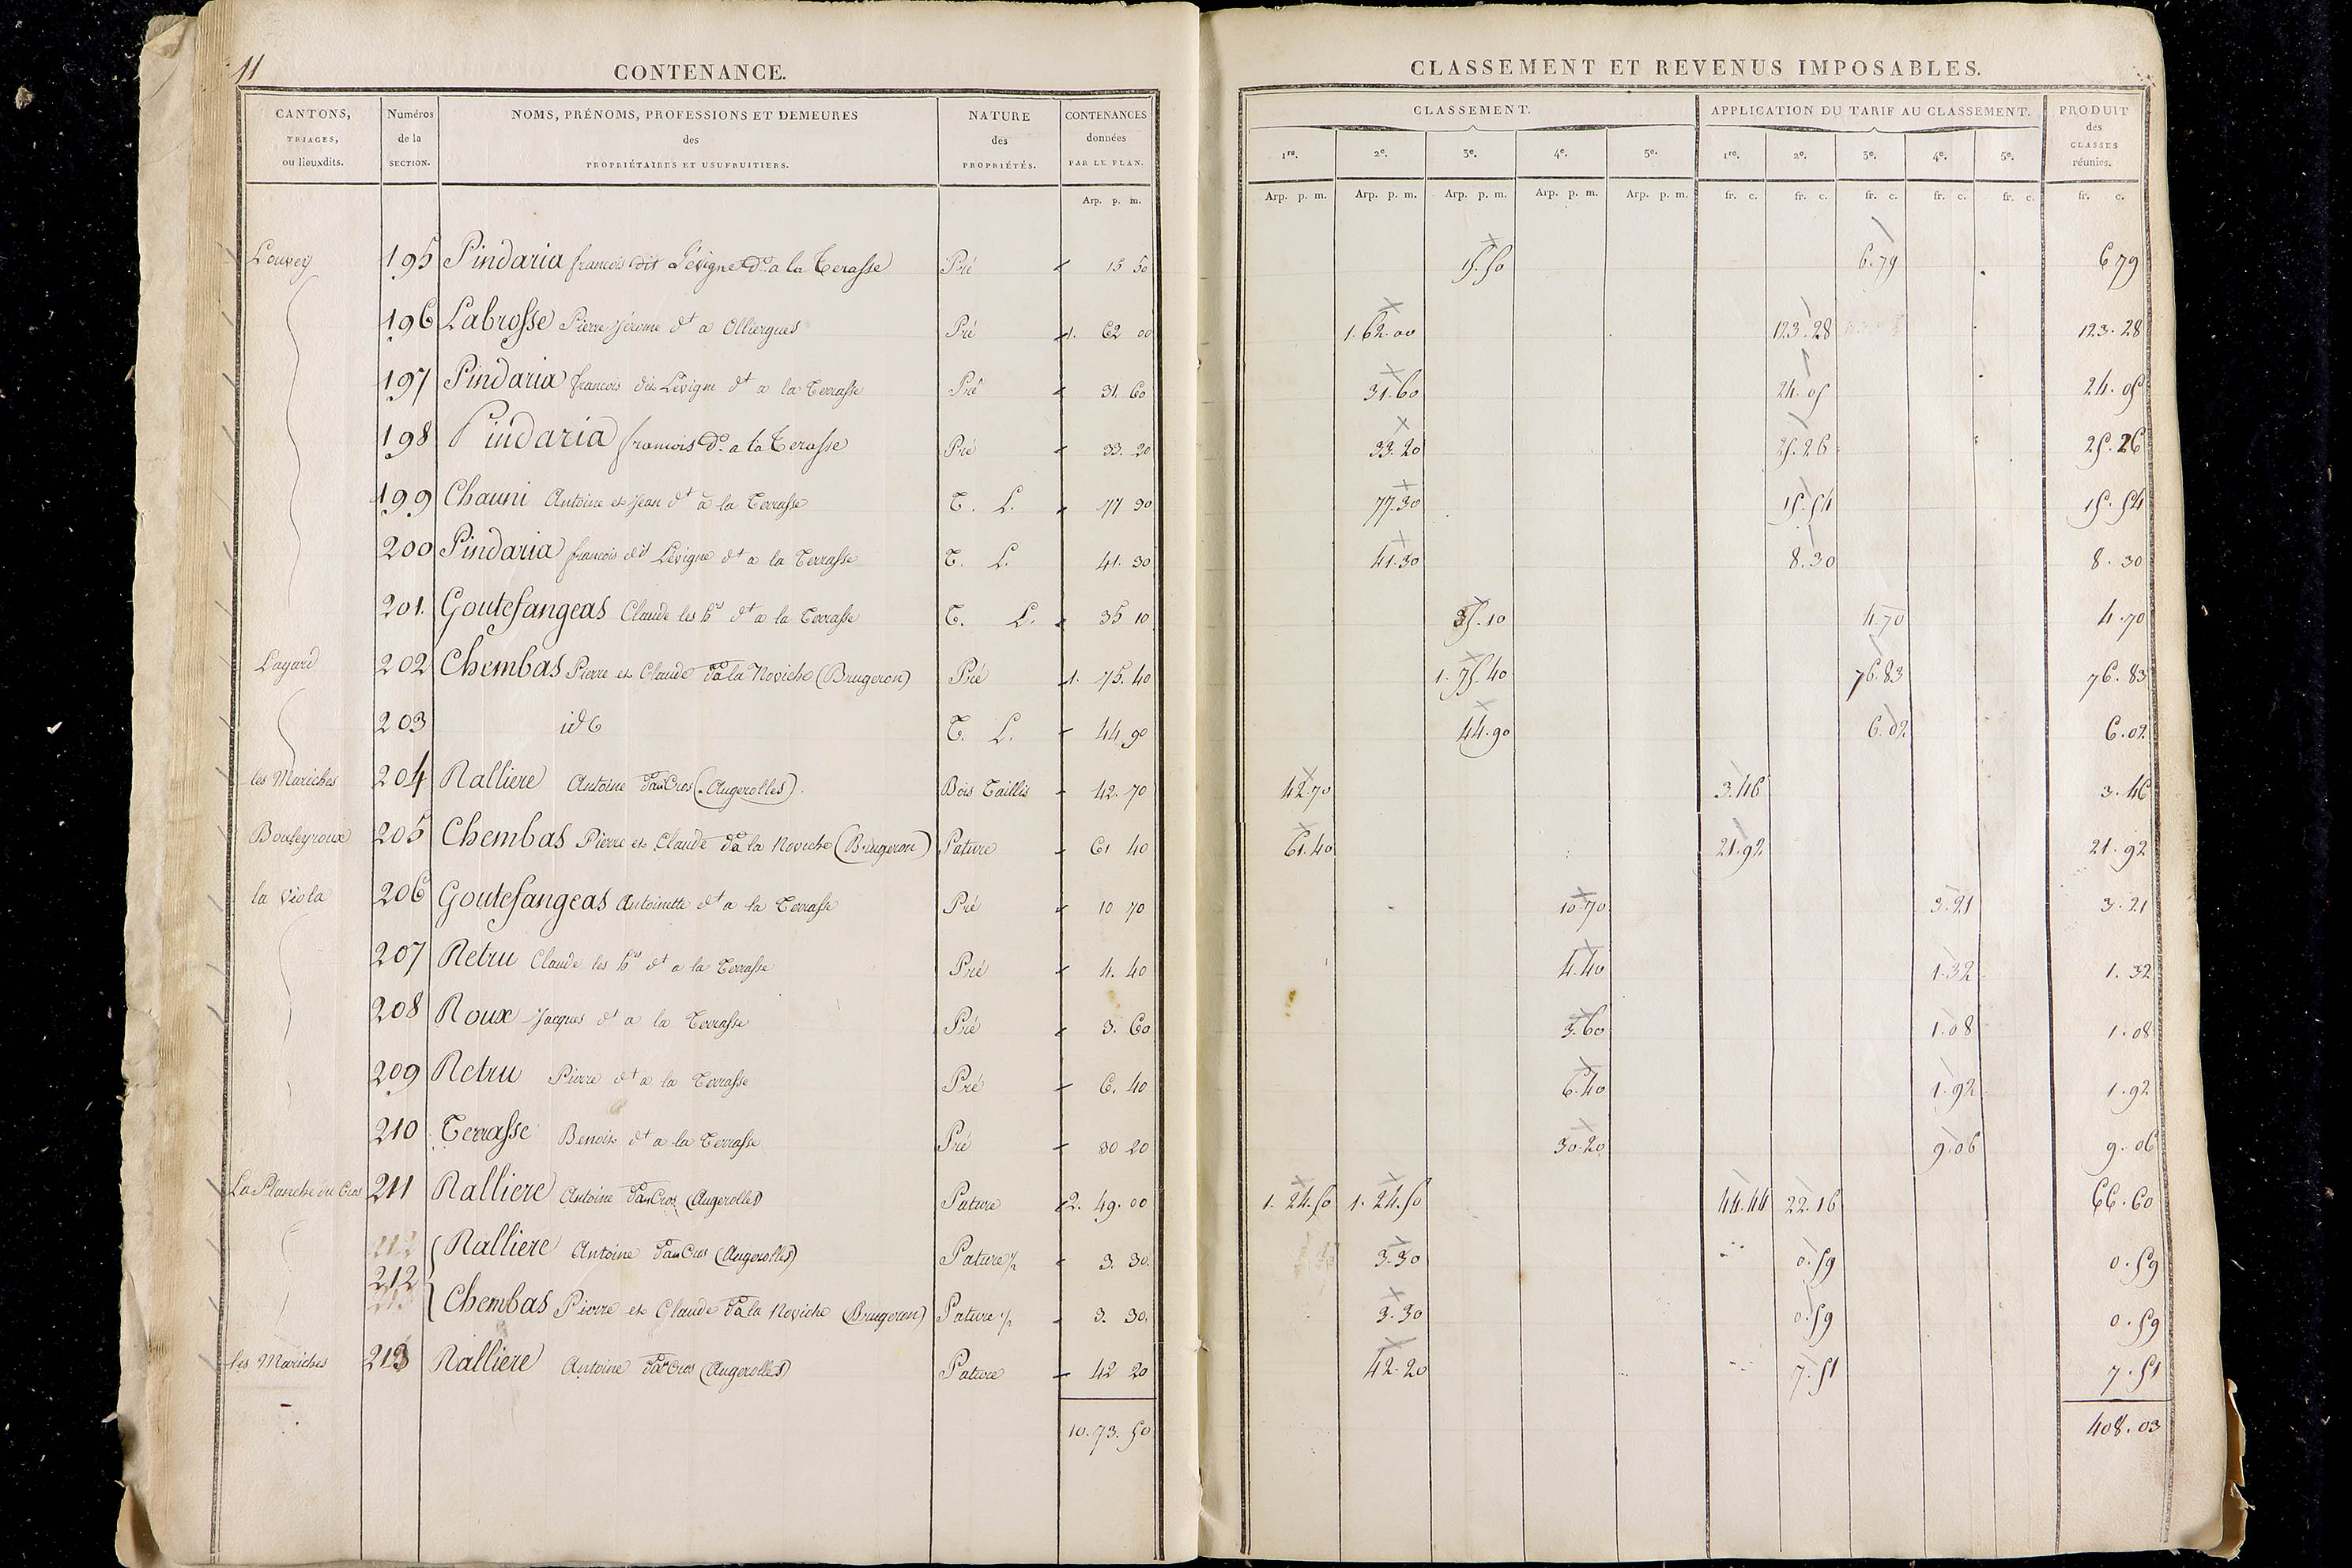 11
CONTENANCE.
CANTONS, TRIAGES, ou lieuxdits.
Numéros de la SECTION.
NOMS, PRÉNOMS, PROFESSIONS ET DEMEURES des PROPRIÉTAIRES ET USUFRUITIERS.
NATURE des PROPRIÉTÉS.
CONTENANCES données PAR LE PLAN.
Arp. p. m.
CLASSEMENT ET REVENUS IMPOSABLES.
CLASSEMENT.
APPLICATION DU TARIF AU CLASSEMENT.
PRODUIT des CLASSES réunies.
1re. 2e. 3e. 4e. 5e. 1re. 2e. 3e. 4e. 5e.
Arp. p. m. Arp. p. m. Arp. p. m. Arp. p. m. Arp. p. m. fr. c. fr. c. fr. c. fr. c. fr. c. fr. c.
Louvey 195 Pindaria francois dit Lévigne do. a la Terasse Pré 15 50 15.50 6.79 6 79
196 Labrosse Pierre Jérome dt a Olliergues Pré 1. 62 00 1.62.00 123.28 123.28
197 Pindaria francois dit Lévigne dt a la Terrasse Pré 31. 60 31.60 24.05 24.05
198 Pindaria francois do. a la Terasse Pré 33. 20 33.20 25.26 25.26
199 Chauni Antoine et Jean dt a la Terrasse T. L. 77 30 77.30 15.54 15.54
200 Pindaria francois dit Lévigne dt a la Terrasse T. L. 41. 30 41.30 8.30 8.30
201. Goutefangeas Claude les hrs dt a la Terrasse T. L. 35 10 35.10 4.70 4.70
Layard 202 Chembas Pierre et Claude do a la Noviche (Brugeron) Pré 1. 75. 40 1.75.40 76.83 76.83
203 id T. L. 44.90 44.90 6.02 6.02
les Mariches 204 Ralliere Antoine do au Cros (Augerolles) Bois Taillis 42. 70 42.70 3.46 3.46
Bouleyroux 205 Chembas Pierre et Claude do a la Noviche (Brugeron) Pature 61 40 61.40 21.92 21.92
la Viola 206 Goutefangeas Antoinette dt a la Terrasse Pré 10 70 10.70 3.21 3.21
207 Retru Claude les hrs dt a la Terrasse Pré 4. 40 4.40 1.32 1.32
208 Roux Jacques dt a la Terrasse Pré 3. 60 3.60 1.08 1.08
209 Retru Pierre dt a la Terrasse Pré 6. 40 6.40 1.92 1.92
210 Terrasse Benoit dt a la Terrasse Pré 30 20 30.20 9.06 9.06
La Planche du Cros 211 Ralliere Antoine do au Cros (Augerolles) Pature 2. 49. 00 1.24.50 1.24.50 44.44 22.16 66.60
212 Ralliere Antoine do au Cros (Augerolles) Pature 1/2 3. 30. 3.30 0.59 0.59
Chembas Pierre et Claude do a la Noviche (Brugeron) Pature 1/2 3. 30. 3.30 0.59 0.59
les Mariches 213 Ralliere Antoine do au Cros (Augerolles) Pature 42 20 42.20 7.51 7.51
10.73.50 408.03